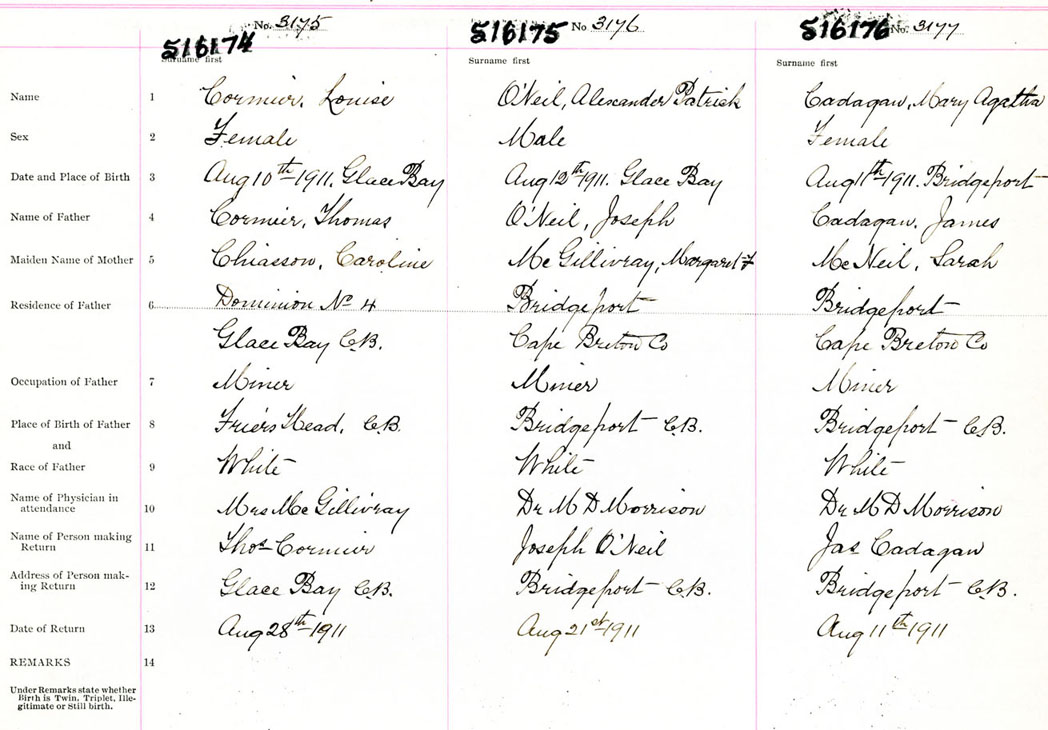 No. 3175 No 3176 No. 3177
516174 516175 516176
Surname first Surname first Surname first
Name 1 Cormier, Louise O'Neil, Alexander Patrick Cadagan, Mary Agatha
Sex 2 Female Male Female
Date and Place of Birth 3 Aug 10th 1911. Glace Bay Aug 12th 1911. Glace Bay Aug 11th 1911. Bridgeport
Name of Father 4 Cormier, Thomas O'Neil, Joseph Cadagan, James
Maiden Name of Mother 5 Chiasson, Caroline McGillivray, Margaret F McNeil, Sarah
Residence of Father 6 Dominion No 4 Bridgeport Bridgeport
Glace Bay C.B. Cape Breton Co Cape Breton Co
Occupation of Father 7 Miner Miner Miner
Place of Birth of Father 8 Friers Head, C.B. Bridgeport C.B. Bridgeport C.B.
and
Race of Father 9 White White White
Name of Physician in
attendance 10 Mrs McGillivray Dr M D Morrison Dr M D Morrison
Name of Person making
Return 11 Thos Cormier Joseph O'Neil Jas Cadagan
Address of Person mak-
ing Return 12 Glace Bay C.B. Bridgeport C.B. Bridgeport C.B.
Date of Return 13 Aug 28th 1911 Aug 21st 1911 Aug 11th 1911
REMARKS 14
Under Remarks state whether
Birth is Twin, Triplet, Ille-
gitimate or Still birth.